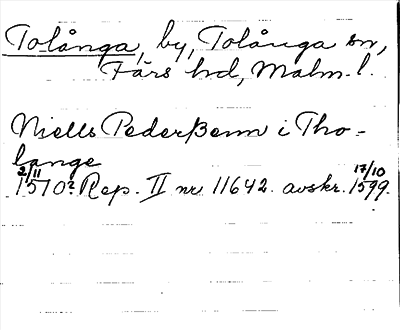 Tolånga, by, Tolånga sn,
Färs hd, Malm. l.
Niells Pederßenn i Tho-
lange
2/11 1570? Rep. II nr 11642. avskr. 17/10 1599.